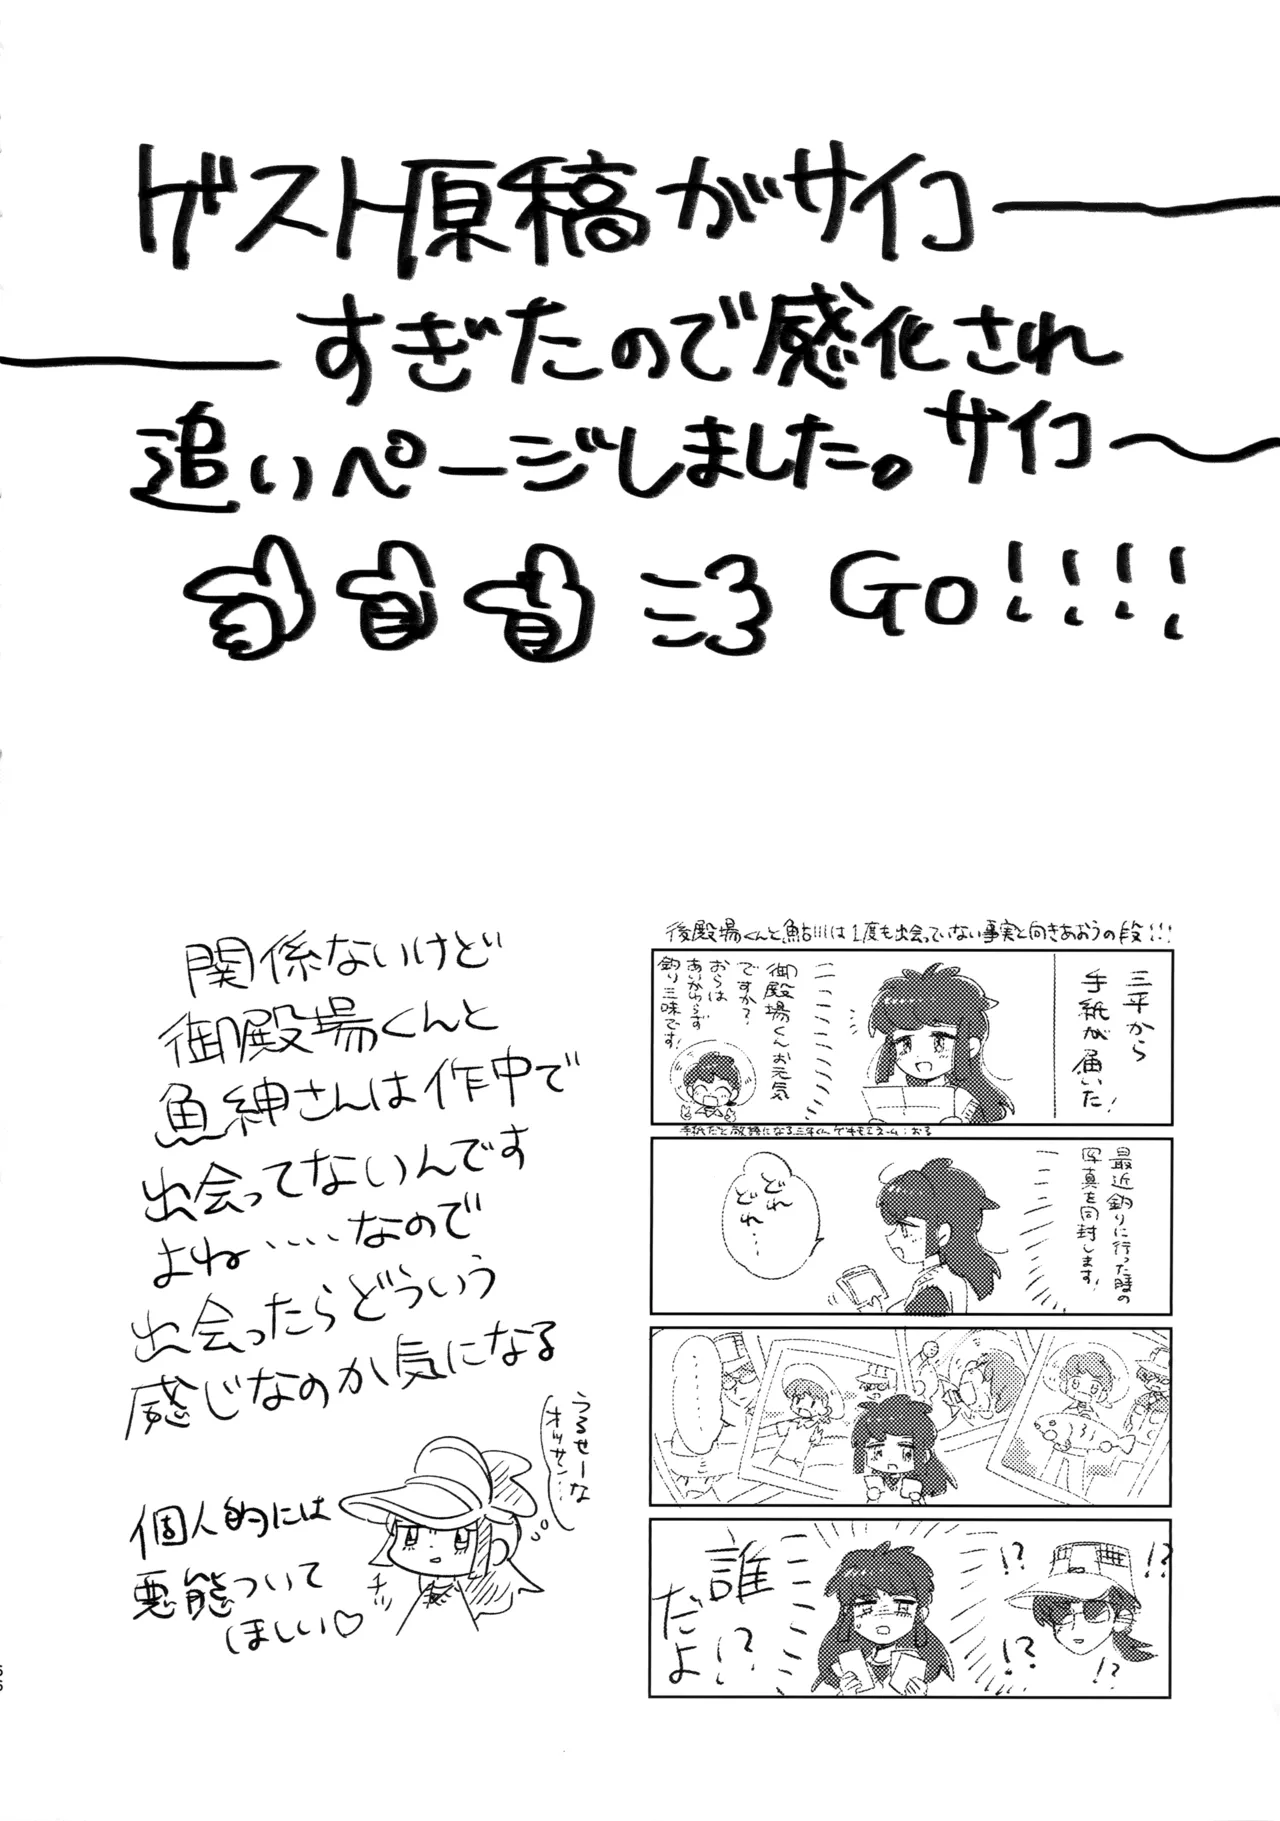 ゲスト原稿がサイコ──
──すぎたので感化され
追いページしました。サイコ〜
GO!!!!
後殿場くんと鮎川は1度も出会っていない事実と向きあおうの段!!!
三平から
手紙が届いた!
御殿場くんお元気
ですか?
おらは
あいかわらず
釣り三昧です!
手紙だと敬語になる三平くんで
最近釣りに行った時の
写真を同封します!
どれ
どれ…
……
誰
だよ!?
!?
!?
!?
!?
関係ないけど
御殿場くんと
魚紳さんは作中で
出会ってないんです
よね‥‥なので
出会ったらどういう
感じなのか気になる
うるせーな
オッサン…
チッ
個人的には
悪態ついて
ほしい♡